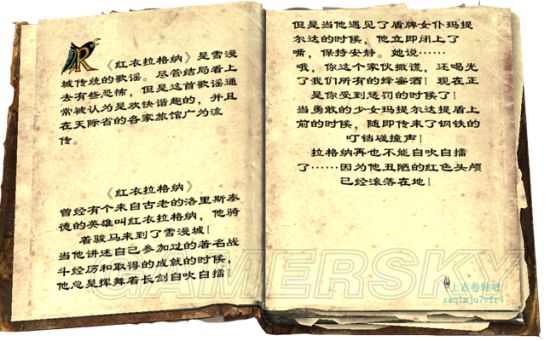 《红衣拉格纳》是雪漫
城传统的歌谣。尽管结局看上
去有些恐怖，但是这首歌谣通
常被认为是欢快谐趣的，并且
在天际省的各家旅馆广为流
传。
《红衣拉格纳》
曾经有个来自古老的洛里斯泰
德的英雄叫红衣拉格纳，他骑
着骏马来到了雪漫城！
当他讲述自己参加过的著名战
斗经历和取得的成就的时候，
他总是挥舞着长剑自吹自擂！
但是当他遇见了盾牌女仆玛提
尔达的时候，他立即闭上了
嘴，保持安静。她说……
哦，你这个家伙撒谎，还喝光
了我们所有的蜂蜜酒！现在正
是你受到惩罚的时候了！
当勇敢的少女玛提尔达提盾上
前的时候，随即传来了钢铁的
叮铛碰撞声！
拉格纳再也不能自吹自擂
了……因为他丑陋的红色头颅
已经滚落在地！
GAMERSKY
上古卷轴吧
zaq1mju7vfr4